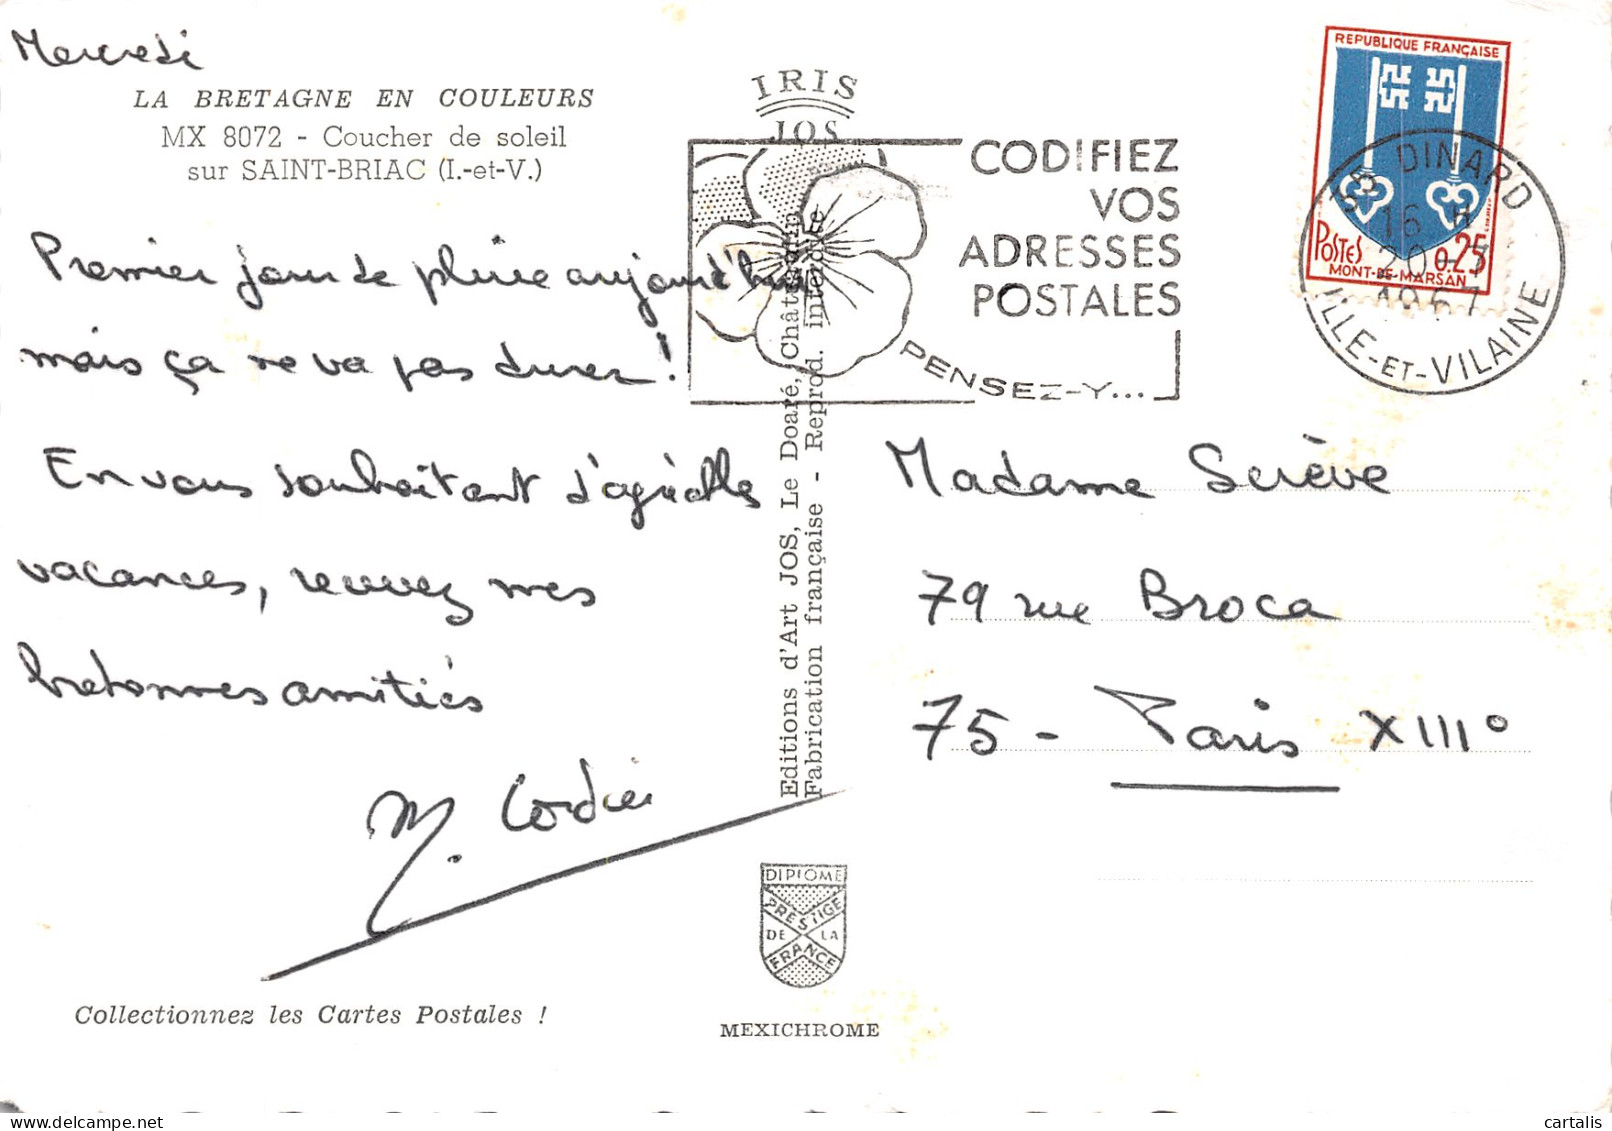 Mercredi
LA BRETAGNE EN COULEURS
MX 8072 - Coucher de soleil
sur SAINT-BRIAC (I.-et-V.)
Premier jour de pluie aujourd'hui
mais ça ne va pas durer !
En vous souhaitant d'agréables
vacances, recevez mes
bretonnes amitiés
M. Cordier
Collectionnez les Cartes Postales !
IRIS
JOS
CODIFIEZ
VOS
ADRESSES
POSTALES
PENSEZ-Y...
Editions d'Art JOS, Le Doaré, Châteaulin
Fabrication française - Reprod. interdite
DIPLOME
PRESTIGE
DE LA
FRANCE
MEXICHROME
REPUBLIQUE FRANÇAISE
POSTES 0.25
MONT-DE-MARSAN
35 DINARD
16 H
20-7
1967
ILLE-ET-VILAINE
Madame Serève
79 rue Broca
75 - Paris XIII°
cartalis